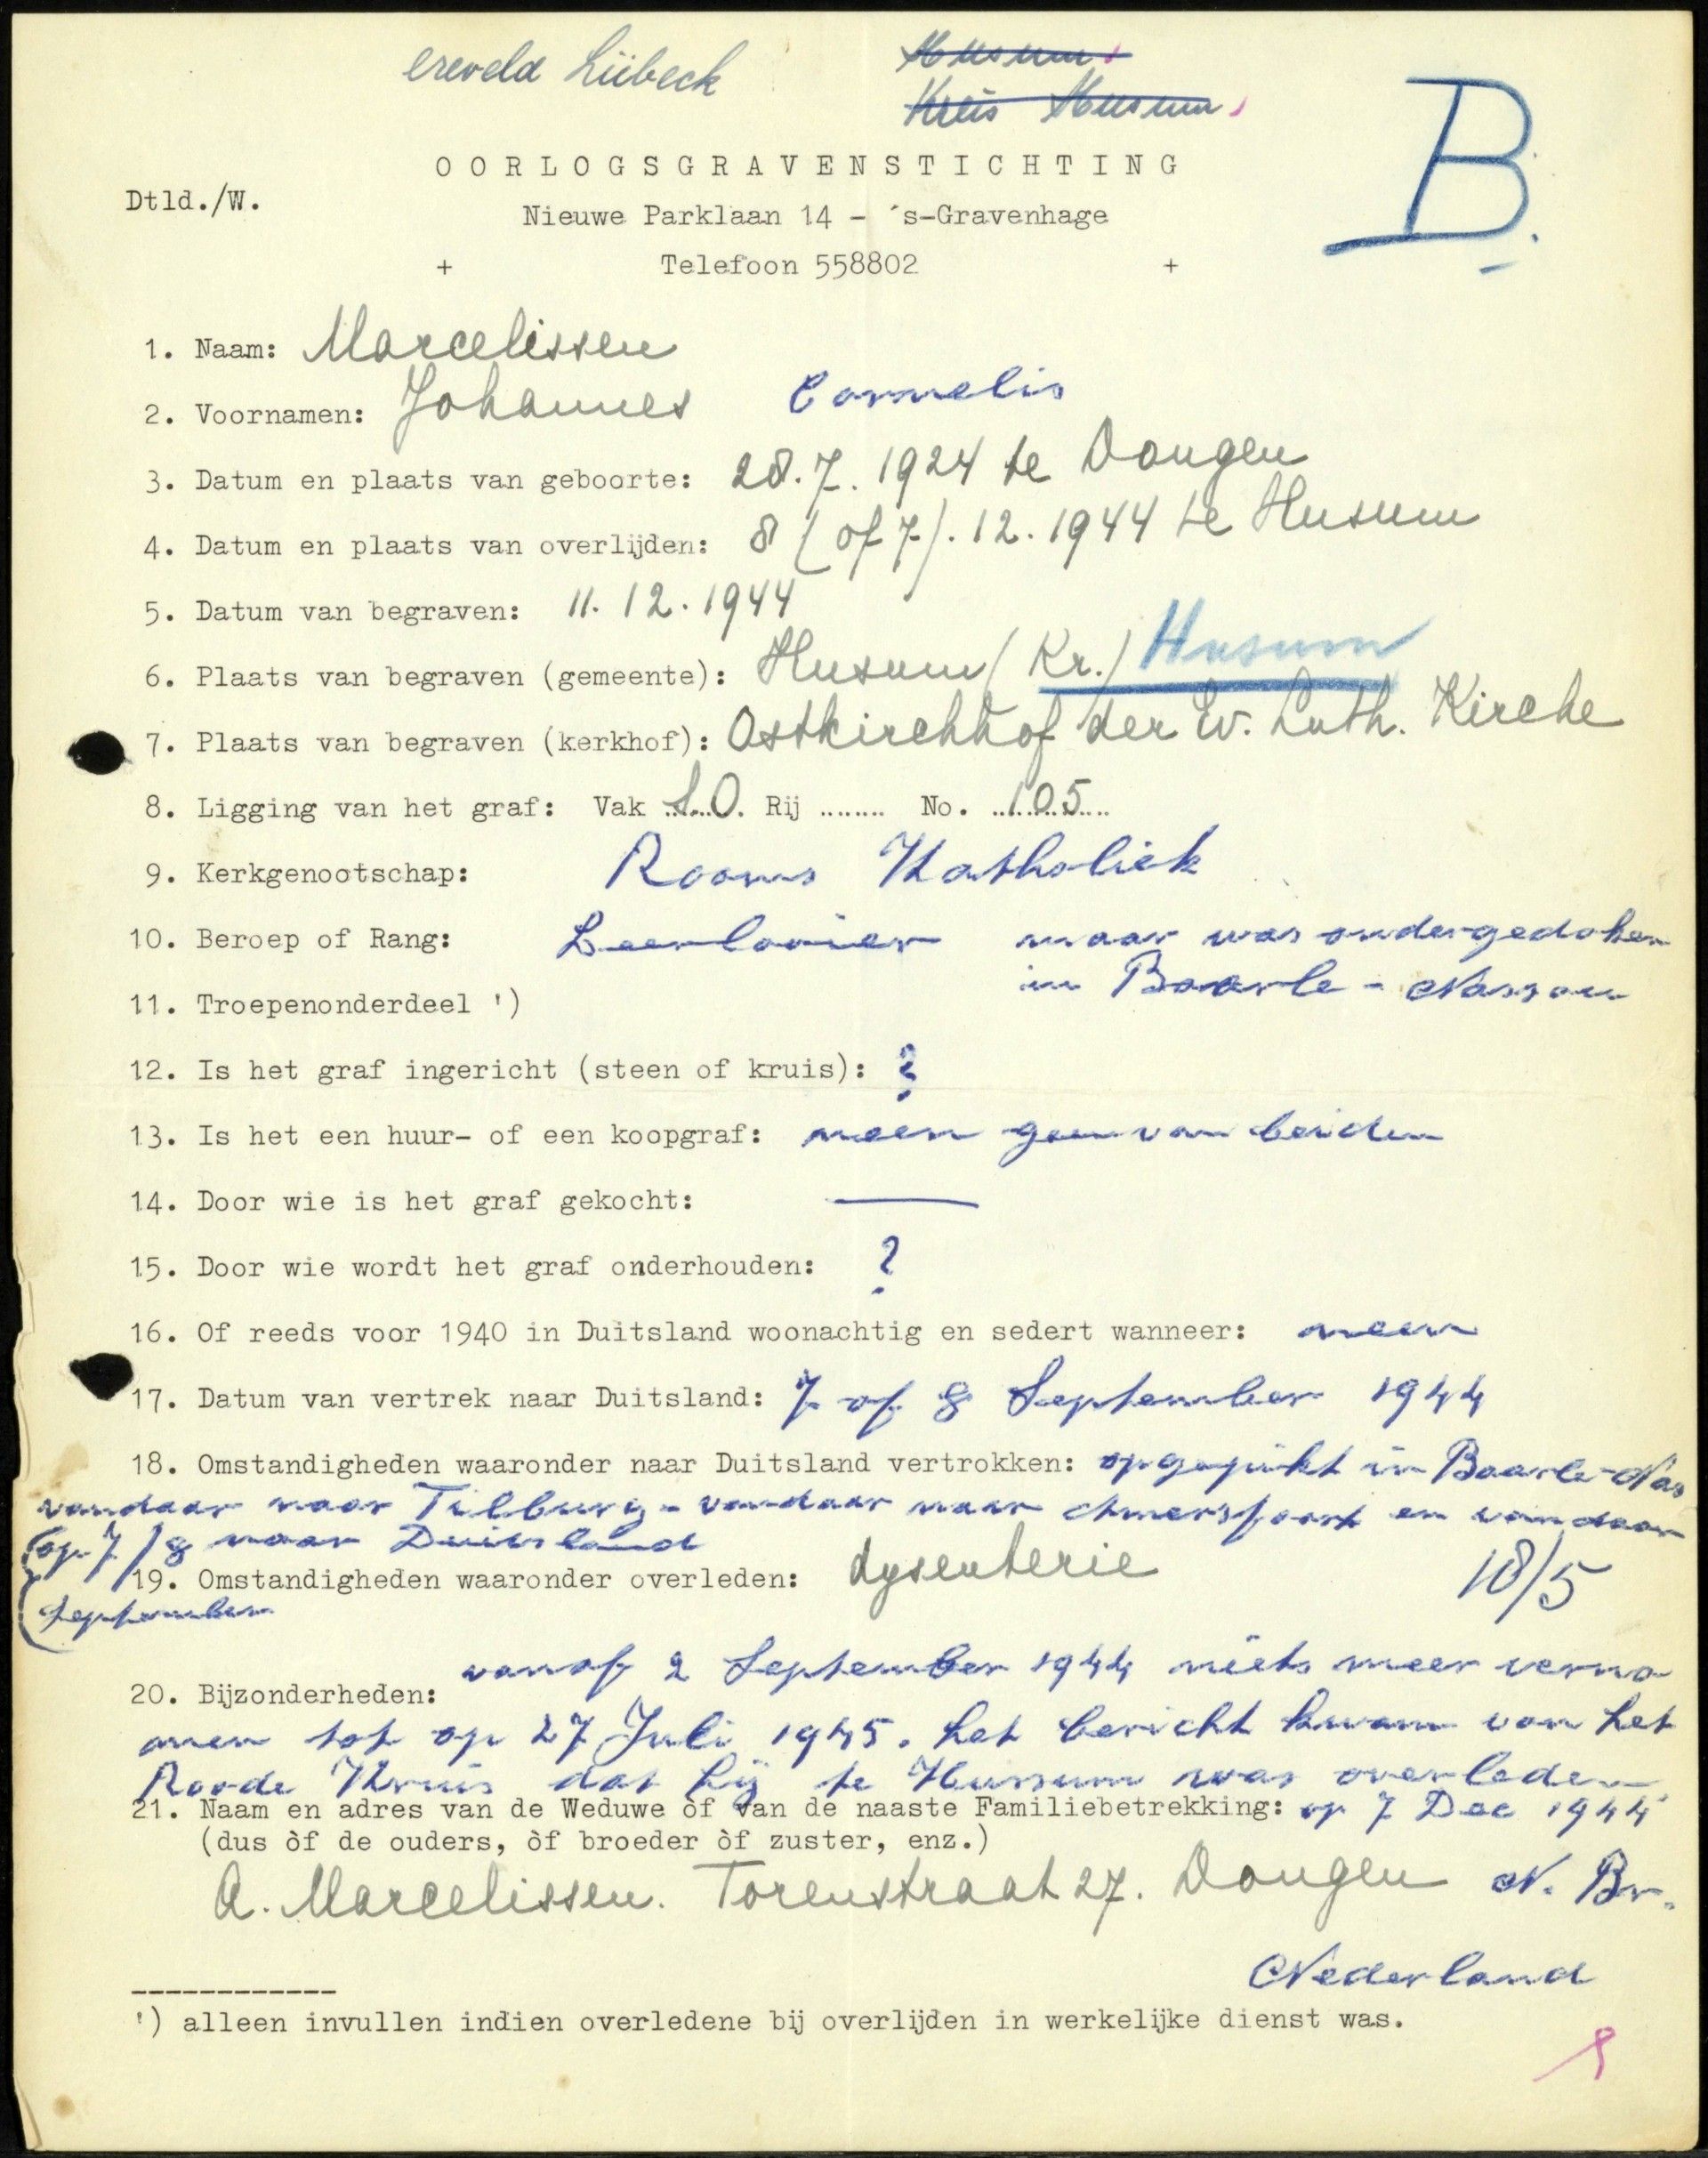 ereveld Lübeck
Husum
Kreis Husum
B.
OORLOGSGRAVENSTICHTING
Dtld./W.
Nieuwe Parklaan 14 - 's-Gravenhage
+ Telefoon 558802 +
1. Naam: Marcelissen
2. Voornamen: Johannes Cornelis
3. Datum en plaats van geboorte: 28.7.1924 te Dongen
4. Datum en plaats van overlijden: 8 (of 7).12.1944 te Husum
5. Datum van begraven: 11.12.1944
6. Plaats van begraven (gemeente): Husum (Kr.) Husum
7. Plaats van begraven (kerkhof): Ostkirchhof der Ev. Luth. Kirche
8. Ligging van het graf: Vak ..... Rij ....... No. 105
9. Kerkgenootschap: Rooms Katholiek
10. Beroep of Rang: Leerlooier maar was ondergedoken
in Baarle-Nassau
11. Troepenonderdeel ')
12. Is het graf ingericht (steen of kruis): ?
13. Is het een huur- of een koopgraf: neen geen van beiden
14. Door wie is het graf gekocht: —
15. Door wie wordt het graf onderhouden: ?
16. Of reeds voor 1940 in Duitsland woonachtig en sedert wanneer: neen
17. Datum van vertrek naar Duitsland: 7 of 8 September 1944
18. Omstandigheden waaronder naar Duitsland vertrokken: opgepikt in Baarle-Nas
vandaar naar Tilburg - vandaar naar Amersfoort en vandaar
(op 7/8 naar Duitsland
19. Omstandigheden waaronder overleden: dysenterie 18/5
September
vanaf 2 September 1944 niets meer verno-
20. Bijzonderheden:
men tot op 27 Juli 1945. het bericht kwam van het
Roode Kruis dat hij te Hussum was overleden
21. Naam en adres van de Weduwe òf van de naaste Familiebetrekking: op 7 Dec 1944
(dus òf de ouders, òf broeder òf zuster, enz.)
A. Marcelissen. Torenstraat 27. Dongen N. Br.
Nederland
------------
') alleen invullen indien overledene bij overlijden in werkelijke dienst was.